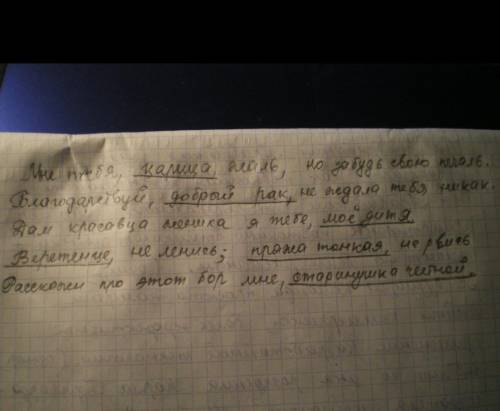 Мне тебя, царица жаль, но забудь свою печаль.
Благодарствуй, добрый рак, не ждала тебя никак.
Дам красавца жениха я тебе, моё дитя.
Веретенце, не ленись; пряжа тонкая, не рвись
Расскажи про этот бор мне, старинушка честной.